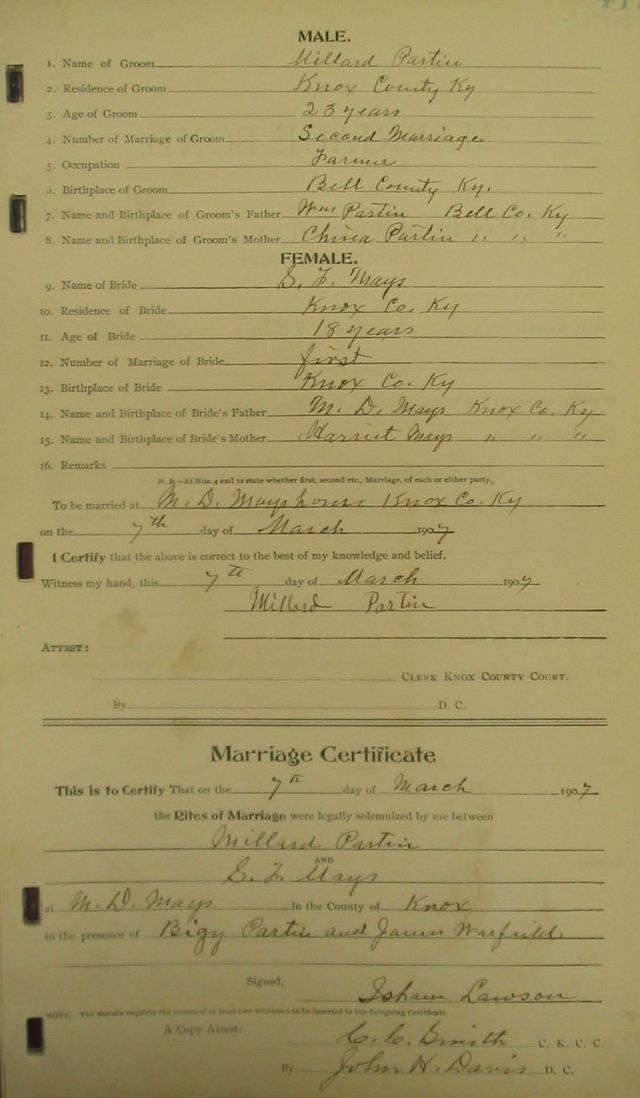 MALE.
1. Name of Groom Millard Partin
2. Residence of Groom Knox County Ky
3. Age of Groom 23 years
4. Number of Marriage of Groom Second Marriage
5. Occupation Farmer
6. Birthplace of Groom Bell County Ky.
7. Name and Birthplace of Groom's Father Wm Partin Bell Co. Ky
8. Name and Birthplace of Groom's Mother Chinea Partin " " "
FEMALE.
9. Name of Bride S. F. Mays
10. Residence of Bride Knox Co. Ky
11. Age of Bride 18 years
12. Number of Marriage of Bride first
13. Birthplace of Bride Knox Co. Ky
14. Name and Birthplace of Bride's Father M. D. Mays Knox Co. Ky
15. Name and Birthplace of Bride's Mother Harriet Mays " " "
16. Remarks
N. B.—At Nos. 4 and 12 state whether first, second etc., Marriage, of each or either party.
To be married at M. D. Mays house Knox Co. Ky
on the 7th day of March 1907
I Certify that the above is correct to the best of my knowledge and belief.
Witness my hand, this 7th day of March 1907
Millard Partin
ATTEST:
CLERK KNOX COUNTY COURT.
By D. C.
Marriage Certificate
This is to Certify That on the 7th day of March 1907
the Rites of Marriage were legally solemnized by me between
Millard Partin
AND
S. F. Mays
at M. D. Mays in the County of Knox
in the presence of Bigy Partin and James Warfield
Signed, Isham Lawson
NOTE. The Statute requires the names of at least two witnesses to be inserted in the foregoing Certificate
A Copy Attest: C. C. Smith C. K. C. C.
By John H. Davis D. C.